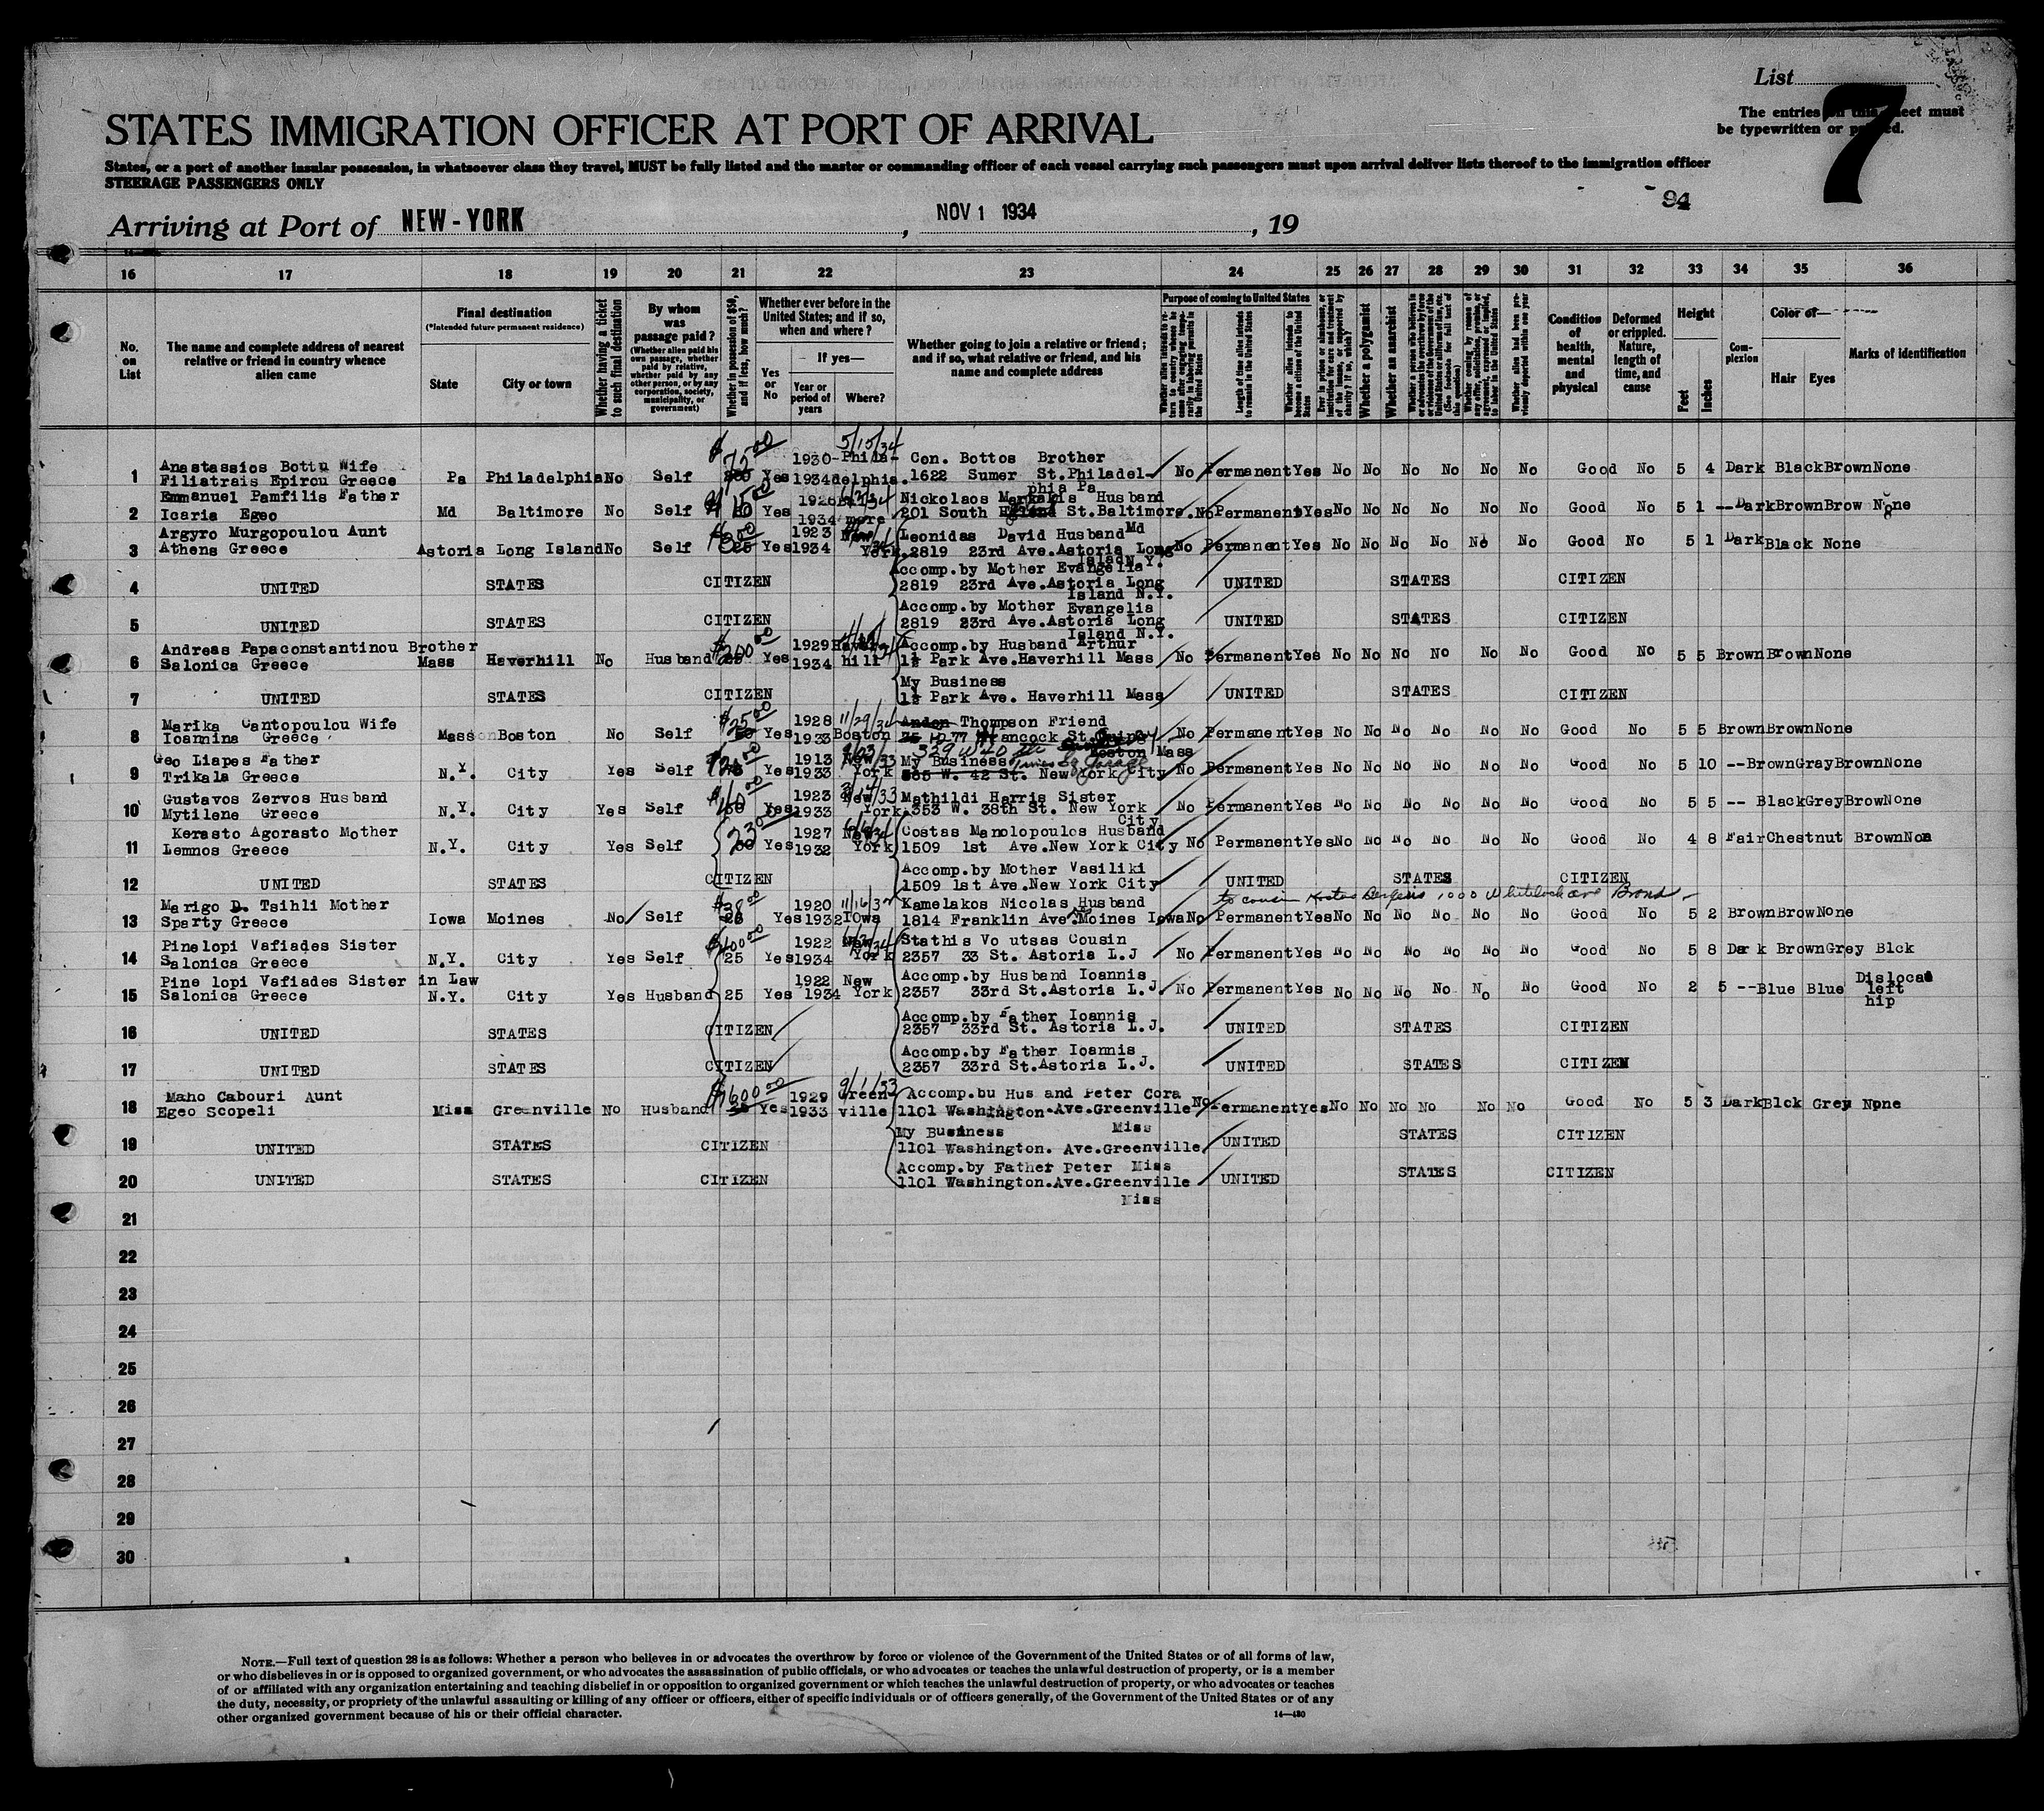 List
7
The entries on this sheet must
be typewritten or printed.
STATES IMMIGRATION OFFICER AT PORT OF ARRIVAL
States, or a port of another insular possession, in whatsoever class they travel, MUST be fully listed and the master or commanding officer of each vessel carrying such passengers must upon arrival deliver lists thereof to the immigration officer
STEERAGE PASSENGERS ONLY
94
Arriving at Port of NEW-YORK, NOV 1 1934, 19
16 17 18 19 20 21 22 23 24 25 26 27 28 29 30 31 32 33 34 35 36
No. on List
The name and complete address of nearest relative or friend in country whence alien came
Final destination
(*Intended future permanent residence)
State
City or town
Whether having a ticket to such final destination
By whom was passage paid?
(Whether alien paid his own passage, whether paid by relative, whether paid by any other person, or by any corporation, society, municipality, or government)
Whether in possession of $50, and if less, how much?
Whether ever before in the United States; and if so, when and where?
Yes or No
If yes—
Year or period of years
Where?
Whether going to join a relative or friend; and if so, what relative or friend, and his name and complete address
Purpose of coming to United States
Whether alien intends to return to country whence he came after engaging temporarily in laboring pursuits in the United States
Length of time alien intends to remain in the United States
Whether alien intends to become a citizen of the United States
Ever in prison or almshouse, or institution for care and treatment of the insane, or supported by charity? If so, which?
Whether a polygamist
Whether an anarchist
(See footnote for full text of this question)
Whether coming by reason of any offer, solicitation, promise, or agreement, expressed or implied, to labor in the United States
Whether alien had been previously deported within one year
Condition of health, mental and physical
Deformed or crippled. Nature, length of time, and cause
Height
Feet
Inches
Complexion
Color of—
Hair
Eyes
Marks of identification
1 Anastassios Bottu Wife
Filiatrais Epirou Greece Pa Philadelphia No Self $75.00 Yes 1930-1934 Philadelphia 5/15/34 Con. Bottos Brother
1622 Sumer St.Philadelphia Pa No Permanent Yes No No No No No No Good No 5 4 Dark Black Brown None
2 Emmanuel Pamfilis Father
Icaria Egeo Md Baltimore No Self Yes 1926 1934 Baltimore Nickolaos Markakis Husband
201 South St.Baltimore. No Permanent Yes No No No No No No Good No 5 1 -- Dark Brown Brow None
3 Argyro Murgopoulou Aunt
Athens Greece Astoria Long Island No Self 25 Yes 1923 1934 New York Leonidas David Husband
2819 23rd Ave.Astoria Long Island N.Y. No Permanent Yes No No No No No No Good No 5 1 Dark Black None
4 UNITED STATES CITIZEN Accomp.by Mother Evangelia
2819 23rd Ave.Astoria Long Island N.Y. UNITED STATES CITIZEN
5 UNITED STATES CITIZEN Accomp.by Mother Evangelia
2819 23rd Ave.Astoria Long Island N.Y. UNITED STATES CITIZEN
6 Andreas Papaconstantinou Brother
Salonica Greece Mass Haverhill No Husband $200.00 25 Yes 1929 1934 Haverhill Accomp.by Husband Arthur
1½ Park Ave.Haverhill Mass No Permanent Yes No No No No No No Good No 5 5 Brown Brown None
7 UNITED STATES CITIZEN My Business
1½ Park Ave. Haverhill Mass UNITED STATES CITIZEN
8 Marika Cantopoulou Wife
Ioannina Greece Mass Boston No Self $25.00 Yes 1928 1933 11/29/34 Boston Thompson Friend
77 Hancock St. Quincy
Boston Mass No Permanent Yes No No No No No No Good No 5 5 Brown Brown None
9 Geo Liapes Father
Trikala Greece N.Y. City Yes Self Yes 1913 1933 New York 329 W 40 St
Times Sq Garage
My Business
W. 42 St. New York City No Permanent Yes No No No No No No Good No 5 10 -- Brown Gray Brown None
10 Gustavos Zervos Husband
Mytilene Greece N.Y. City Yes Self Yes 1923 1933 New York Mathildi Harris Sister
353 W. 38th St. New York City No Permanent Yes No No No No No No Good No 5 5 -- Black Grey Brow None
11 Kerasto Agorasto Mother
Lemnos Greece N.Y. City Yes Self Yes 1927 1932 New York Costas Manolopoulos Husband
1509 1st Ave.New York City No Permanent Yes No No No No No No Good No 4 8 Fair Chestnut Brown Non
12 UNITED STATES CITIZEN Accomp.by Mother Vasiliki
1509 1st Ave.New York City UNITED STATES CITIZEN
13 Marigo D. Tsihli Mother
Sparty Greece Iowa Moines No Self Yes 1920 1932 11/16/34 IOwa Kamelakos Nicolas Husband
1814 Franklin Ave Moines Iowa No Permanent Yes No No No No No No Good No 5 2 Brown Brow None
to cousin Kostas 1000 Whitlock ave Bronx
14 Pinelopi Vafiades Sister
Salonica Greece N.Y. City Yes Self 25 Yes 1922 1934 New York Stathis Vo utsas Cousin
2357 33 St. Astoria L.J No Permanent Yes No No No No No No Good No 5 8 Dark Brown Grey Blck
15 Pine lopi Vafiades Sister in Law
Salonica Greece N.Y. City Yes Husband 25 Yes 1922 1934 New York Accomp.by Husband Ioannis
2357 33rd St.Astoria L.J. No Permanent Yes No No No No No No Good No 2 5 -- Blue Blue Dislocat left hip
16 UNITED STATES CITIZEN Accomp.by Father Ioannis
2357 33rd St. Astoria L.J. UNITED STATES CITIZEN
17 UNITED STATES CITIZEN Accomp.by Father Ioannis
2357 33rd St.Astoria L.J. UNITED STATES CITIZEN
18 Maho Cabouri Aunt
Egeo Scopeli Miss Greenville No Husband Yes 1929 1933 Greenville Accomp.bu Hus and Peter Cora
1101 Washington.Ave.Greenville Miss No Permanent Yes No No No No No No Good No 5 3 Dark Blck Grey None
19 UNITED STATES CITIZEN My Business
1101 Washington. Ave.Greenville Miss UNITED STATES CITIZEN
20 UNITED STATES CITIZEN Accomp.by Father Peter
1101 Washington.Ave.Greenville Miss UNITED STATES CITIZEN
21
22
23
24
25
26
27
28
29
30
NOTE.—Full text of question 28 is as follows: Whether a person who believes in or advocates the overthrow by force or violence of the Government of the United States or of all forms of law,
or who disbelieves in or is opposed to organized government, or who advocates the assassination of public officials, or who advocates or teaches the unlawful destruction of property, or is a member
of or affiliated with any organization entertaining and teaching disbelief in or opposition to organized government or which teaches the unlawful destruction of property, or who advocates or teaches
the duty, necessity, or propriety of the unlawful assaulting or killing of any officer or officers, either of specific individuals or of officers generally, of the Government of the United States or of any
other organized government because of his or their official character.
14—430